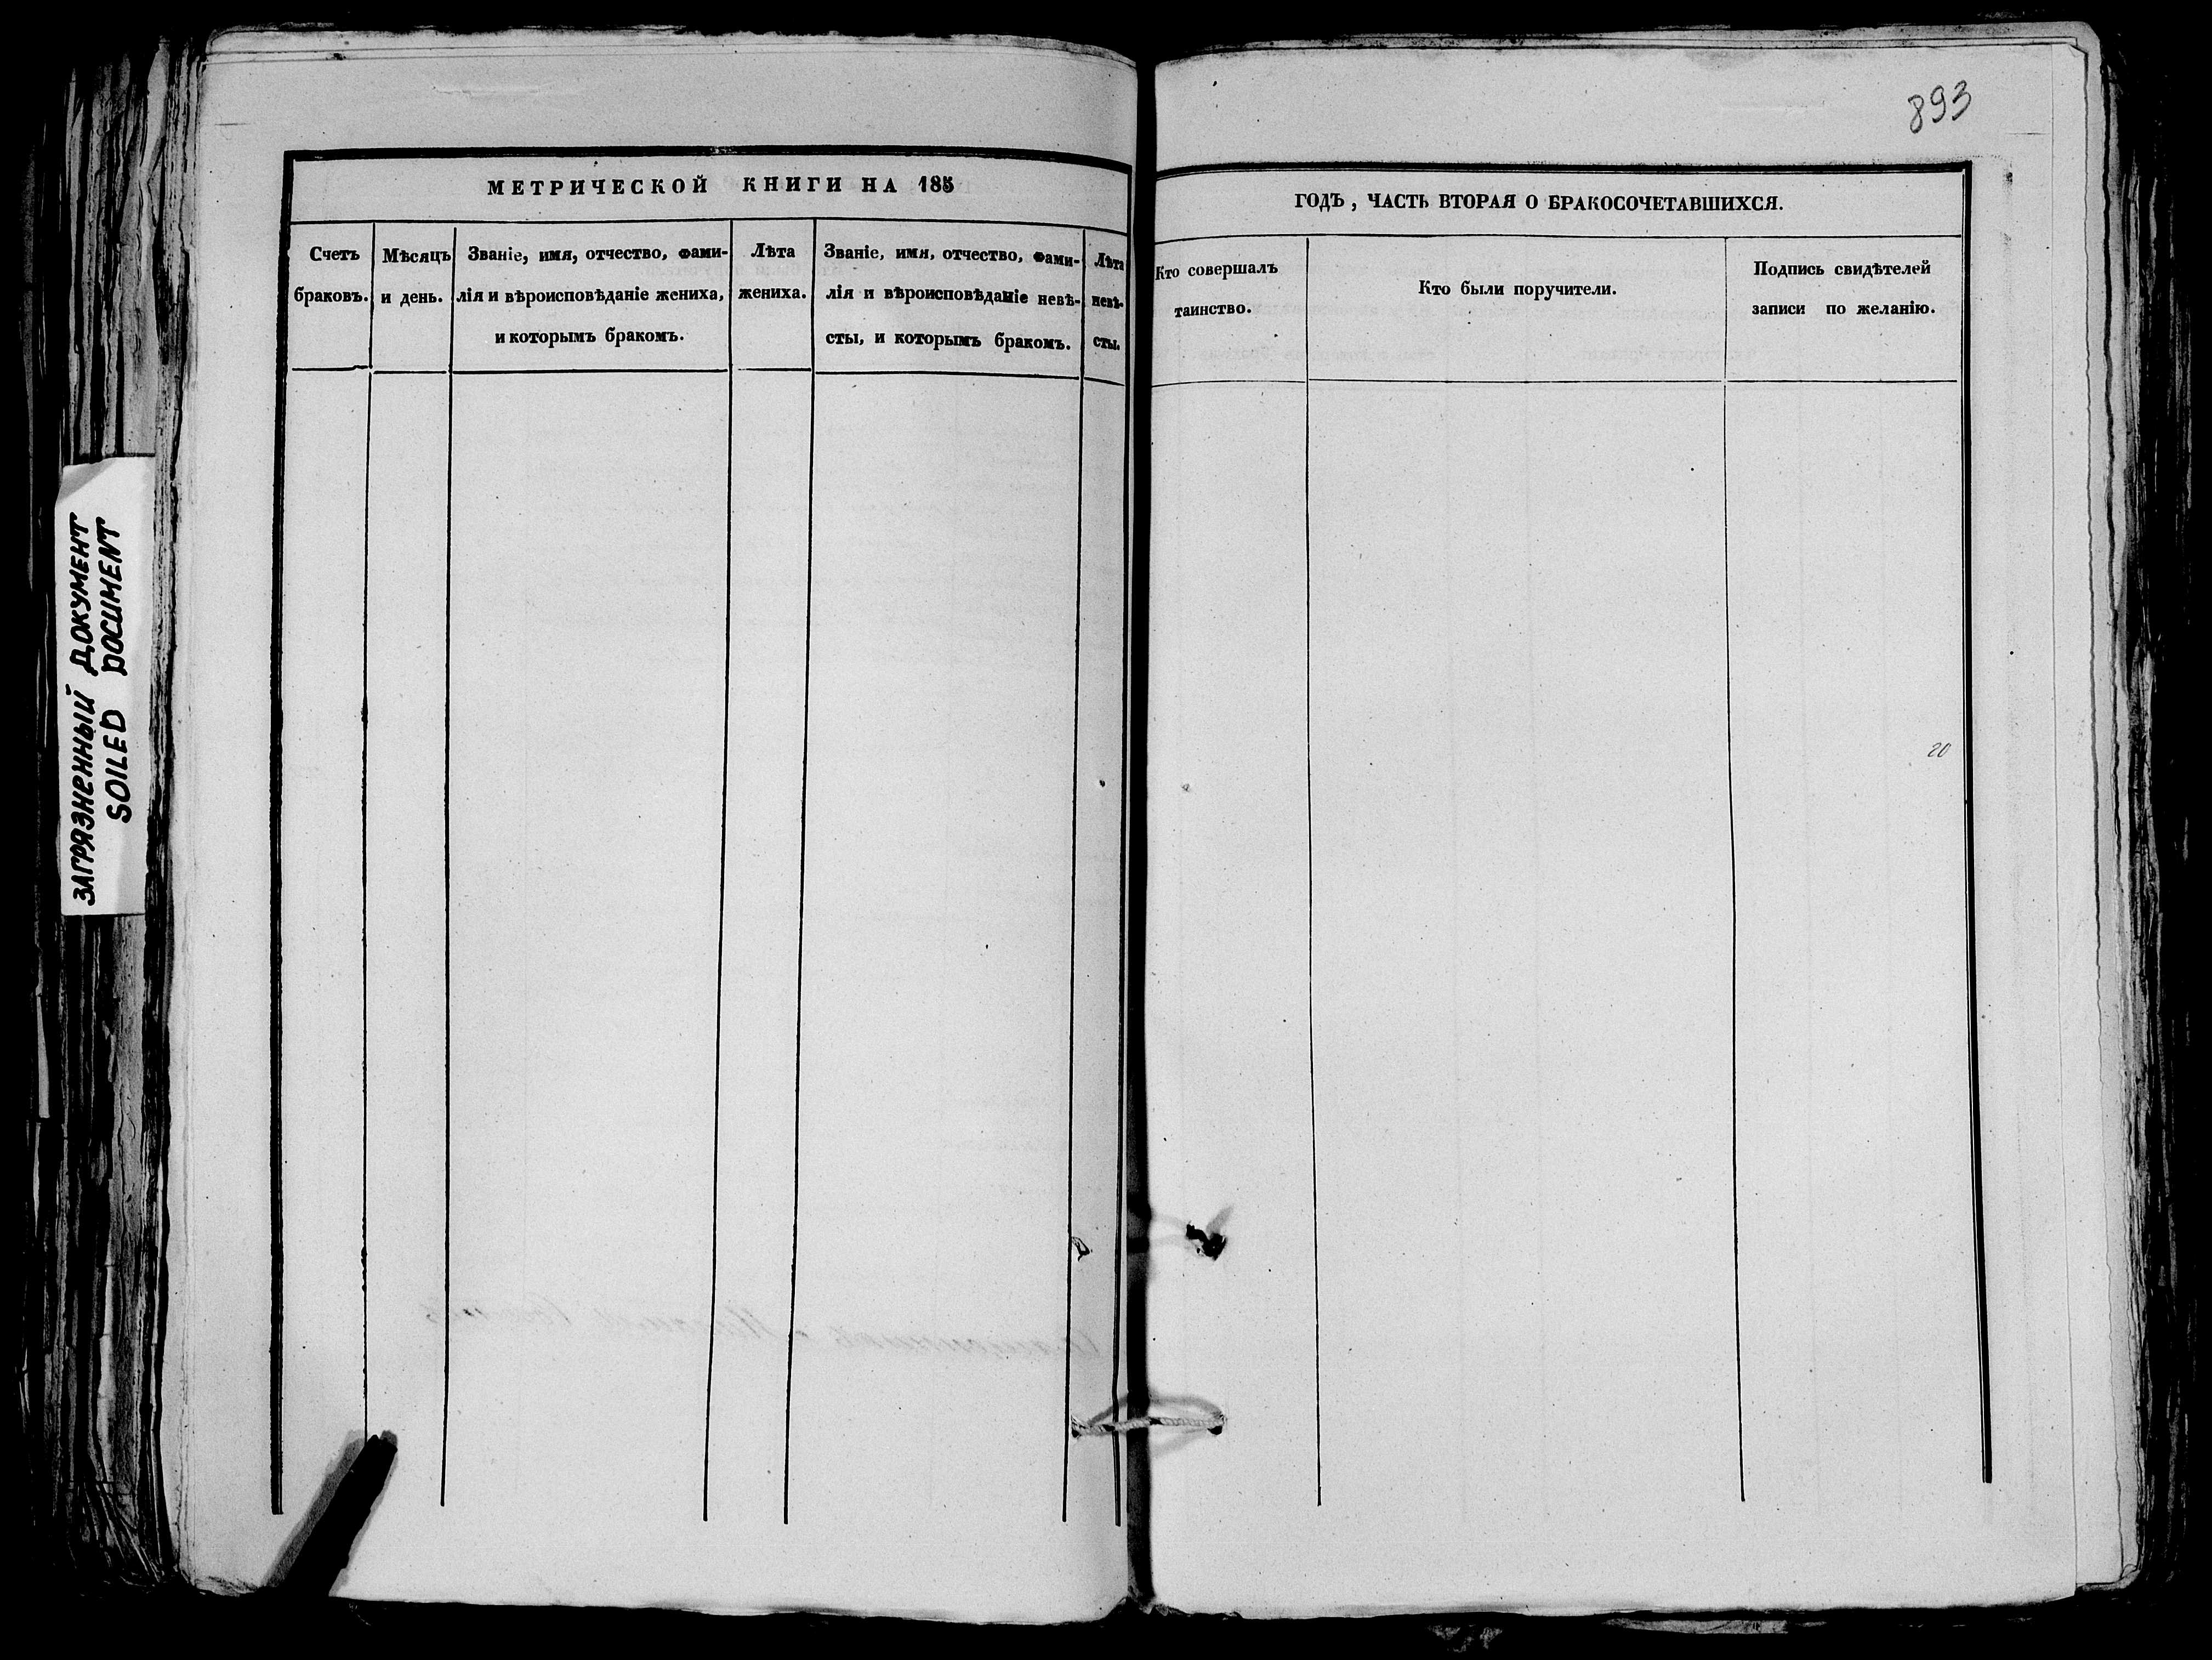 893
МЕТРИЧЕСКОЙ КНИГИ НА 185
ГОДЪ, ЧАСТЬ ВТОРАЯ О БРАКОСОЧЕТАВШИХСЯ.
Счетъ
браковъ.
Мѣсяцъ
и день.
Званіе, имя, отчество, фами-
лія и вѣроисповѣданіе жениха,
и которымъ бракомъ.
Лѣта
жениха.
Званіе, имя, отчество, фами-
лія и вѣроисповѣданіе невѣ-
сты, и которымъ бракомъ.
Лѣта
невѣ-
сты.
Кто совершалъ
таинство.
Кто были поручители.
Подпись свидѣтелей
записи по желанію.
20
ЗАГРЯЗНЕННЫЙ ДОКУМЕНТ
SOILED DOCUMENT